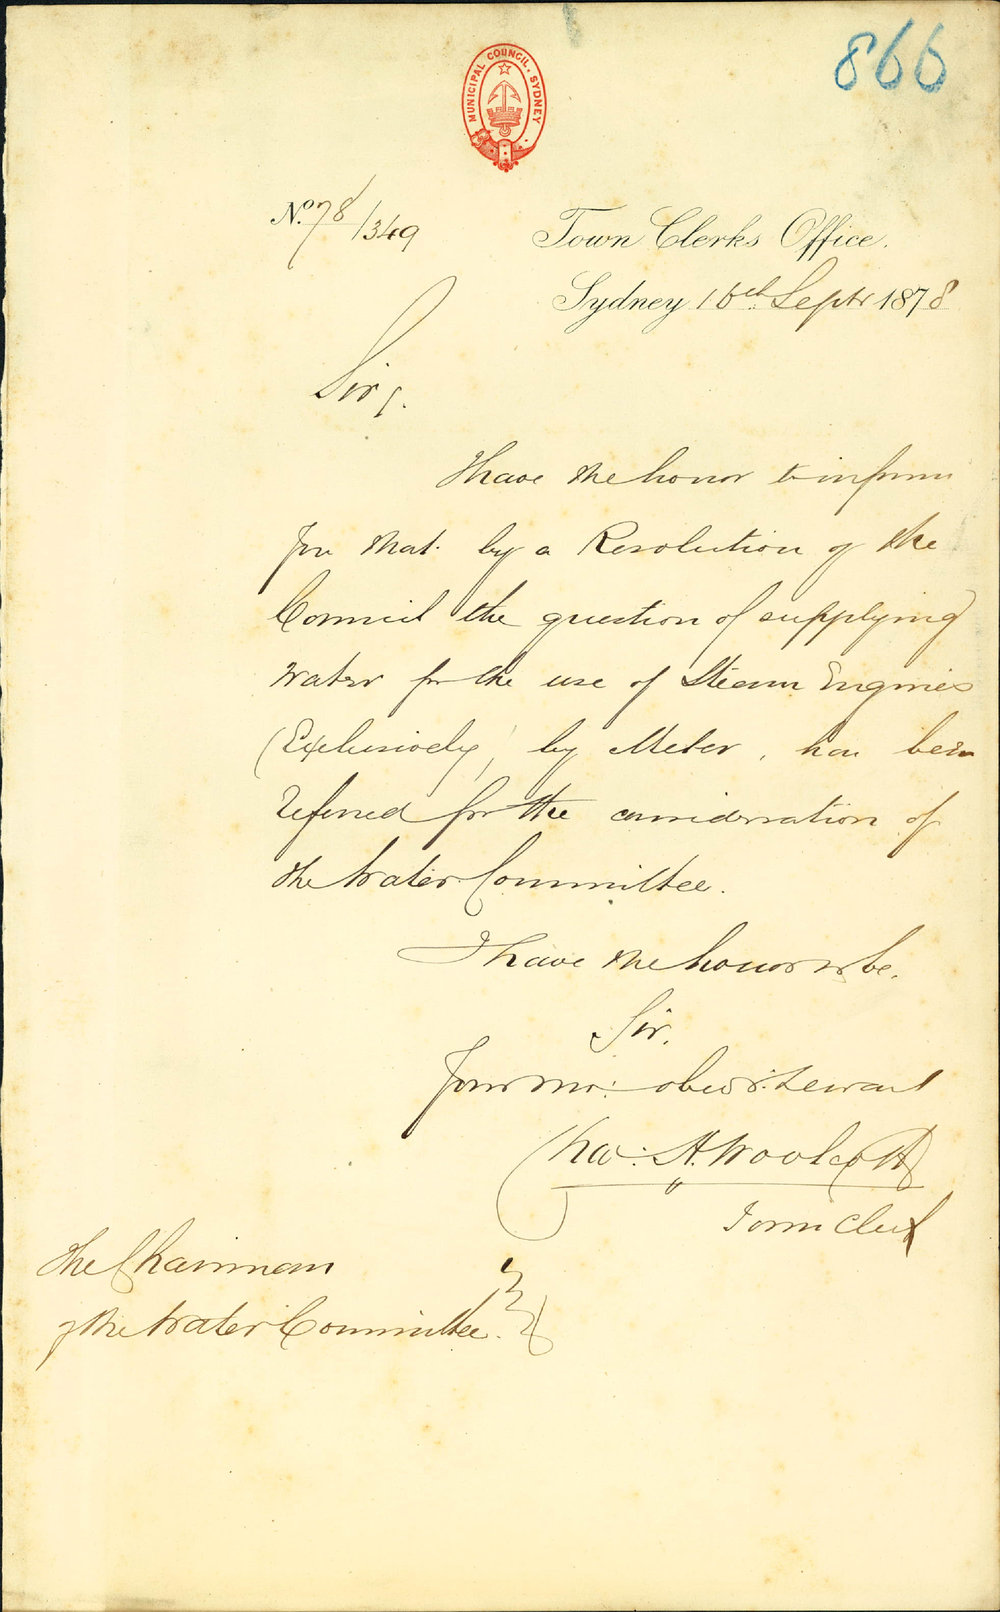 866
MUNICIPAL COUNCIL. SYDNEY
No. 78/349
Town Clerks Office.
Sydney 16th Septr 1878
Sir,
I have the honor to inform
you that by a Resolution of the
Council the question of supplying
Water for the use of Steam Engines
(Exclusively) by Meter, has been
referred for the consideration of
the Water Committee.
I have the honor to be,
Sir,
Your mo: obedt. Servant
Chas: H. Woolcott
Town Clerk
The Chairman
of the Water Committee.